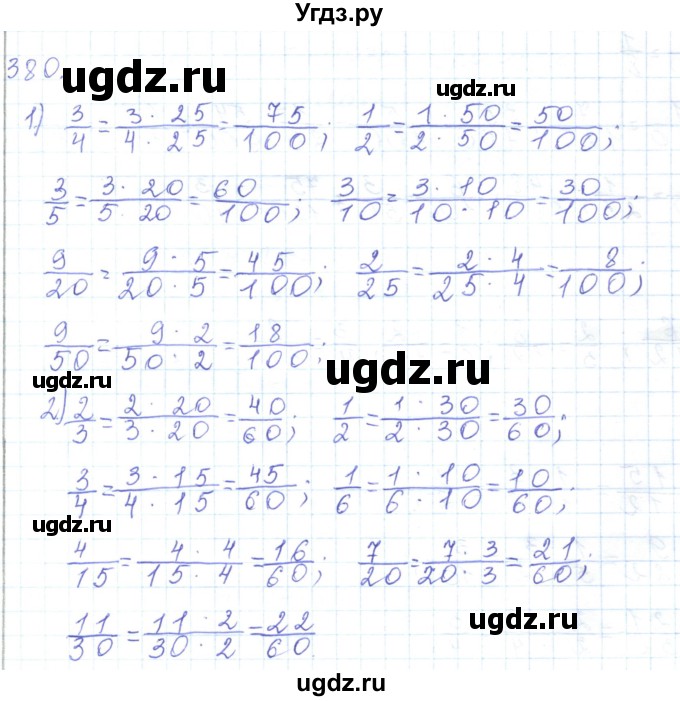 Угдз.ру
380.
ugdz.ru
ugdz.ru
1) 3/4 = 3·25/4·25 = 75/100; 1/2 = 1·50/2·50 = 50/100;
3/5 = 3·20/5·20 = 60/100; 3/10 = 3·10/10·10 = 30/100;
9/20 = 9·5/20·5 = 45/100; 2/25 = 2·4/25·4 = 8/100;
9/50 = 9·2/50·2 = 18/100;
ugdz.ru
ugdz.ru
2) 2/3 = 2·20/3·20 = 40/60; 1/2 = 1·30/2·30 = 30/60;
3/4 = 3·15/4·15 = 45/60; 1/6 = 1·10/6·10 = 10/60;
ugdz.ru
4/15 = 4·4/15·4 = 16/60; 7/20 = 7·3/20·3 = 21/60;
11/30 = 11·2/30·2 = 22/60
ugdz.ru
ugdz.ru